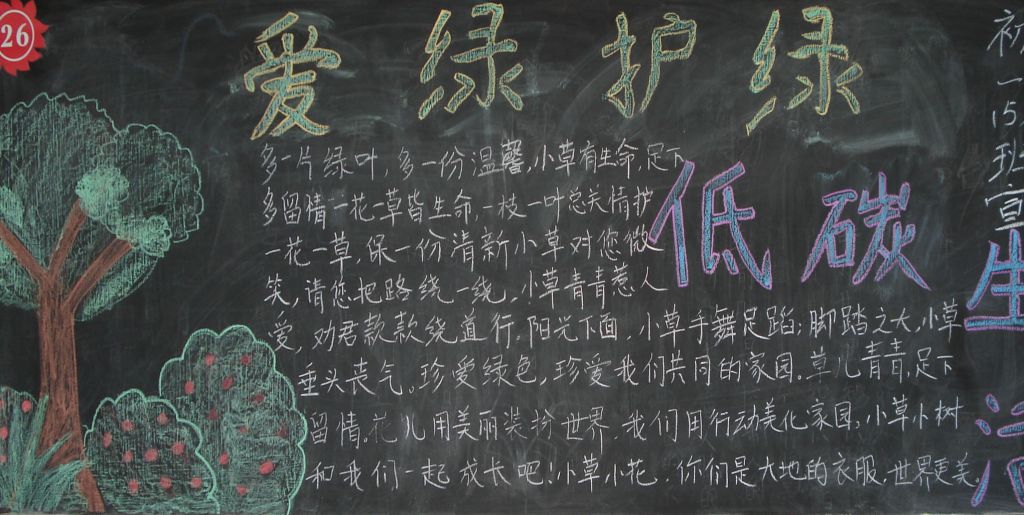 26
爱绿护绿
多一片绿叶,多一份温馨,小草有生命,足下
多留情一花一草皆生命,一枝一叶总关情护
一花一草,保一份清新小草对您微
笑,请您把路绕一绕,小草青青惹人
爱,劝君款款绕道行,阳光下面,小草手舞足蹈;脚踏之大,小草
垂头丧气,珍爱绿色,珍爱我们共同的家园。草儿青青,足下
留情,花儿用美丽装扮世界,我们用行动美化家园,小草小树
和我们一起成长吧!小草小花,你们是大地的衣服,世界更美。
低碳
生
初一15班宣